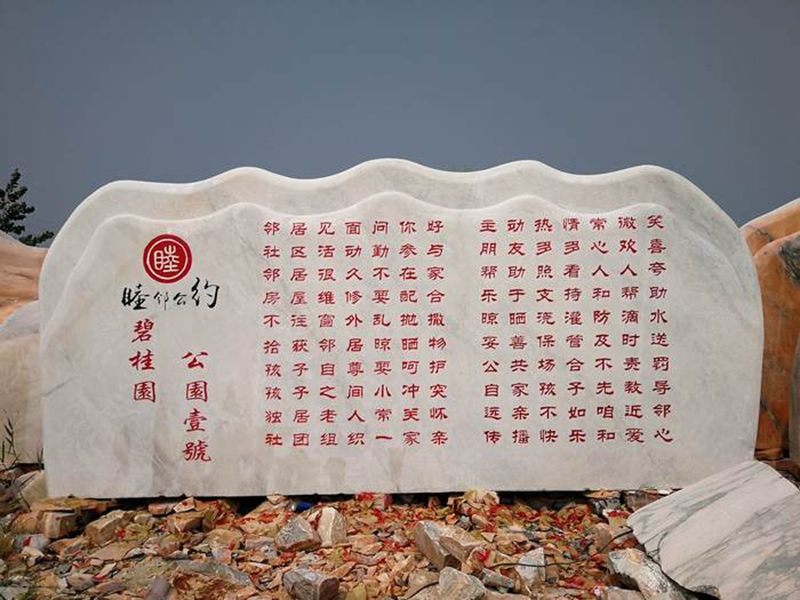 睦
睦邻公约
碧桂園
公園壹號
邻居见面问你好 主动热情常微笑
社区活动勤参与 朋友多多心欢喜
邻居很久不在家 帮助照看人人夸
房屋维修要配合 乐于支持和帮助
不往窗外乱抛撒 晾晒浇灌防滴水
拾获邻居晾晒物 妥善保管及时送
孩子自尊要呵护 公共场合不责罚
孩子之间小冲突 自家孩子先教导
独居老人常关怀 远亲不如咱近邻
社团组织一家亲 传播快乐和爱心